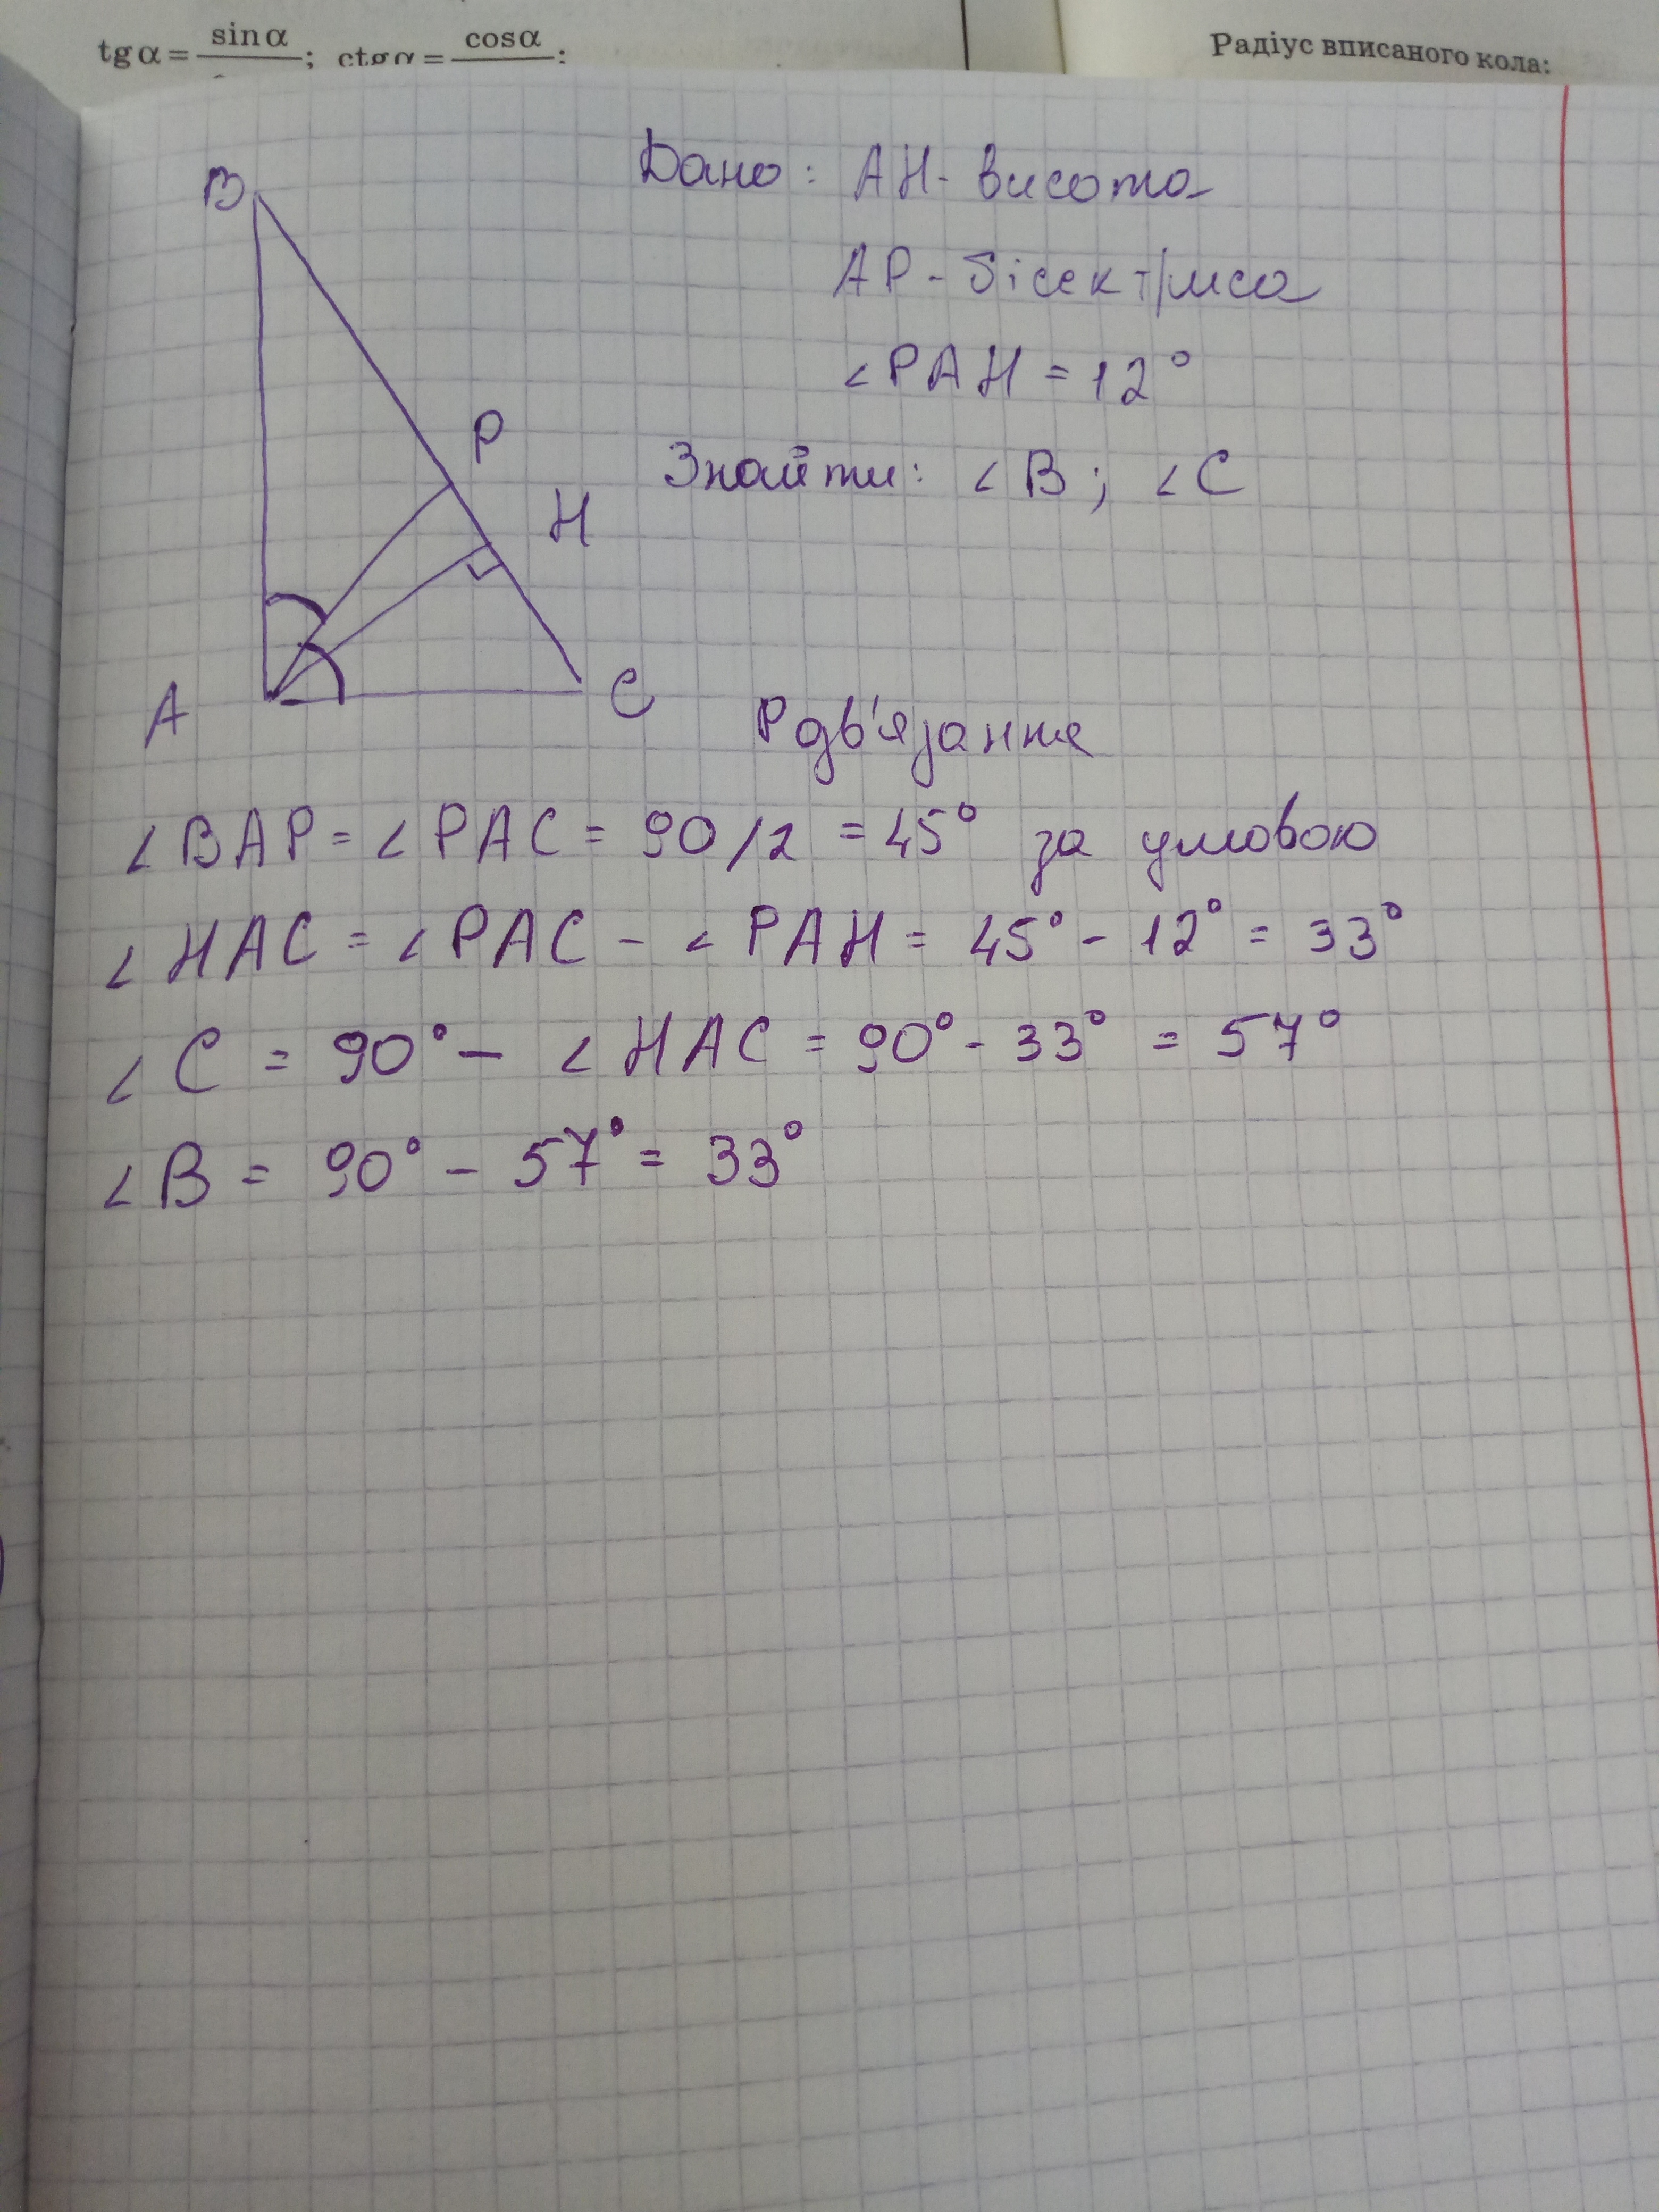 tg α = sin α / ; ctg α = cos α / ;
Радіус вписаного кола:
B
Дано: AH - висота
AP - бісектриса
∠PAH = 12°
P
Знайти: ∠B; ∠C
H
A
C
∠BAP = ∠PAC = 90/2 = 45° за умовою
∠HAC = ∠PAC - ∠PAH = 45° - 12° = 33°
∠C = 90° - ∠HAC = 90° - 33° = 57°
∠B = 90° - 57° = 33°